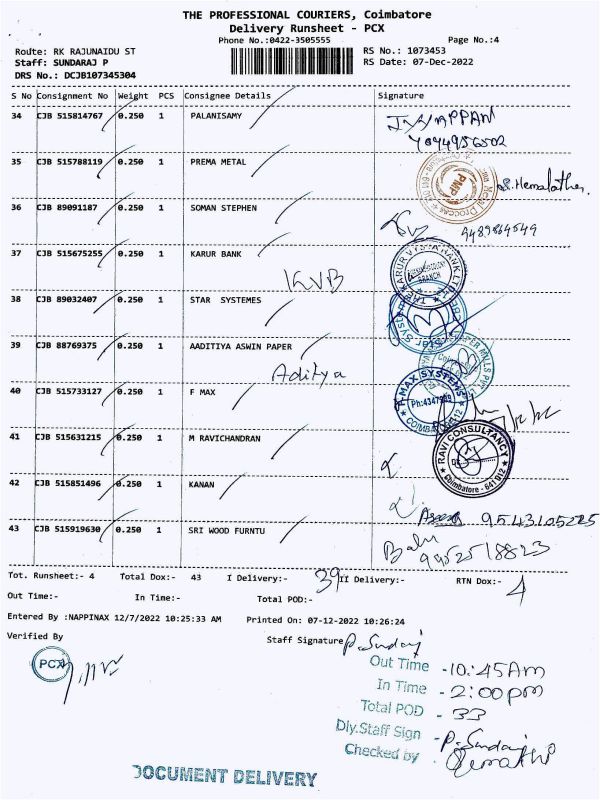 THE PROFESSIONAL COURIERS, Coimbatore
Delivery Runsheet - PCX
Phone No.:0422-3505555 Page No.:4
Route: RK RAJUNAIDU ST RS No.: 1073453
Staff: SUNDARAJ P RS Date: 07-Dec-2022
DRS No.: DCJB107345304
S No Consignment No Weight PCS Consignee Details Signature
34 CJB 515814767 0.250 1 PALANISAMY
35 CJB 515788119 0.250 1 PREMA METAL
PMP
S. Hemalatha
36 CJB 89091187 0.250 1 SOMAN STEPHEN
37 CJB 515675255 0.250 1 KARUR BANK
KVB
BRANCH
38 CJB 89032407 0.250 1 STAR SYSTEMES
39 CJB 88769375 0.250 1 AADITIYA ASWIN PAPER
Aditya
40 CJB 515733127 0.250 1 F MAX
F MAX SYSTEMS
41 CJB 515631215 0.250 1 M RAVICHANDRAN
RAVI CONSULTANCY
Coimbatore - 641 012
42 CJB 515851496 0.250 1 KANAN
43 CJB 515919630 0.250 1 SRI WOOD FURNTU
Babu
9952518823
Tot. Runsheet:- 4 Total Dox:- 43 I Delivery:- 39 II Delivery:- RTN Dox:- 4
Out Time:- In Time:- Total POD:-
Entered By :NAPPINAX 12/7/2022 10:25:33 AM Printed On: 07-12-2022 10:26:24
Verified By Staff Signature P. Sundaj
PCX
Out Time - 10:45Am
In Time - 2:00pm
Total POD - 33
Dly.Staff Sign - P. Sundaj
Checked by
DOCUMENT DELIVERY